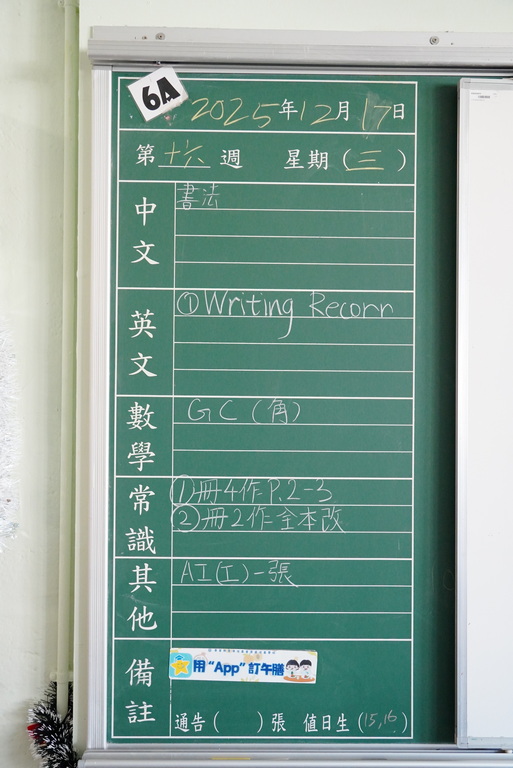 6A
2025年12月17日
第十六週 星期(三)
中文
書法
英文
①Writing Recorn
數學
GC(角)
常識
①冊4作P.2-3
②冊2作全本改
其他
AI(工)一張
備註
用“App”訂午膳
通告( )張 值日生(15,16)